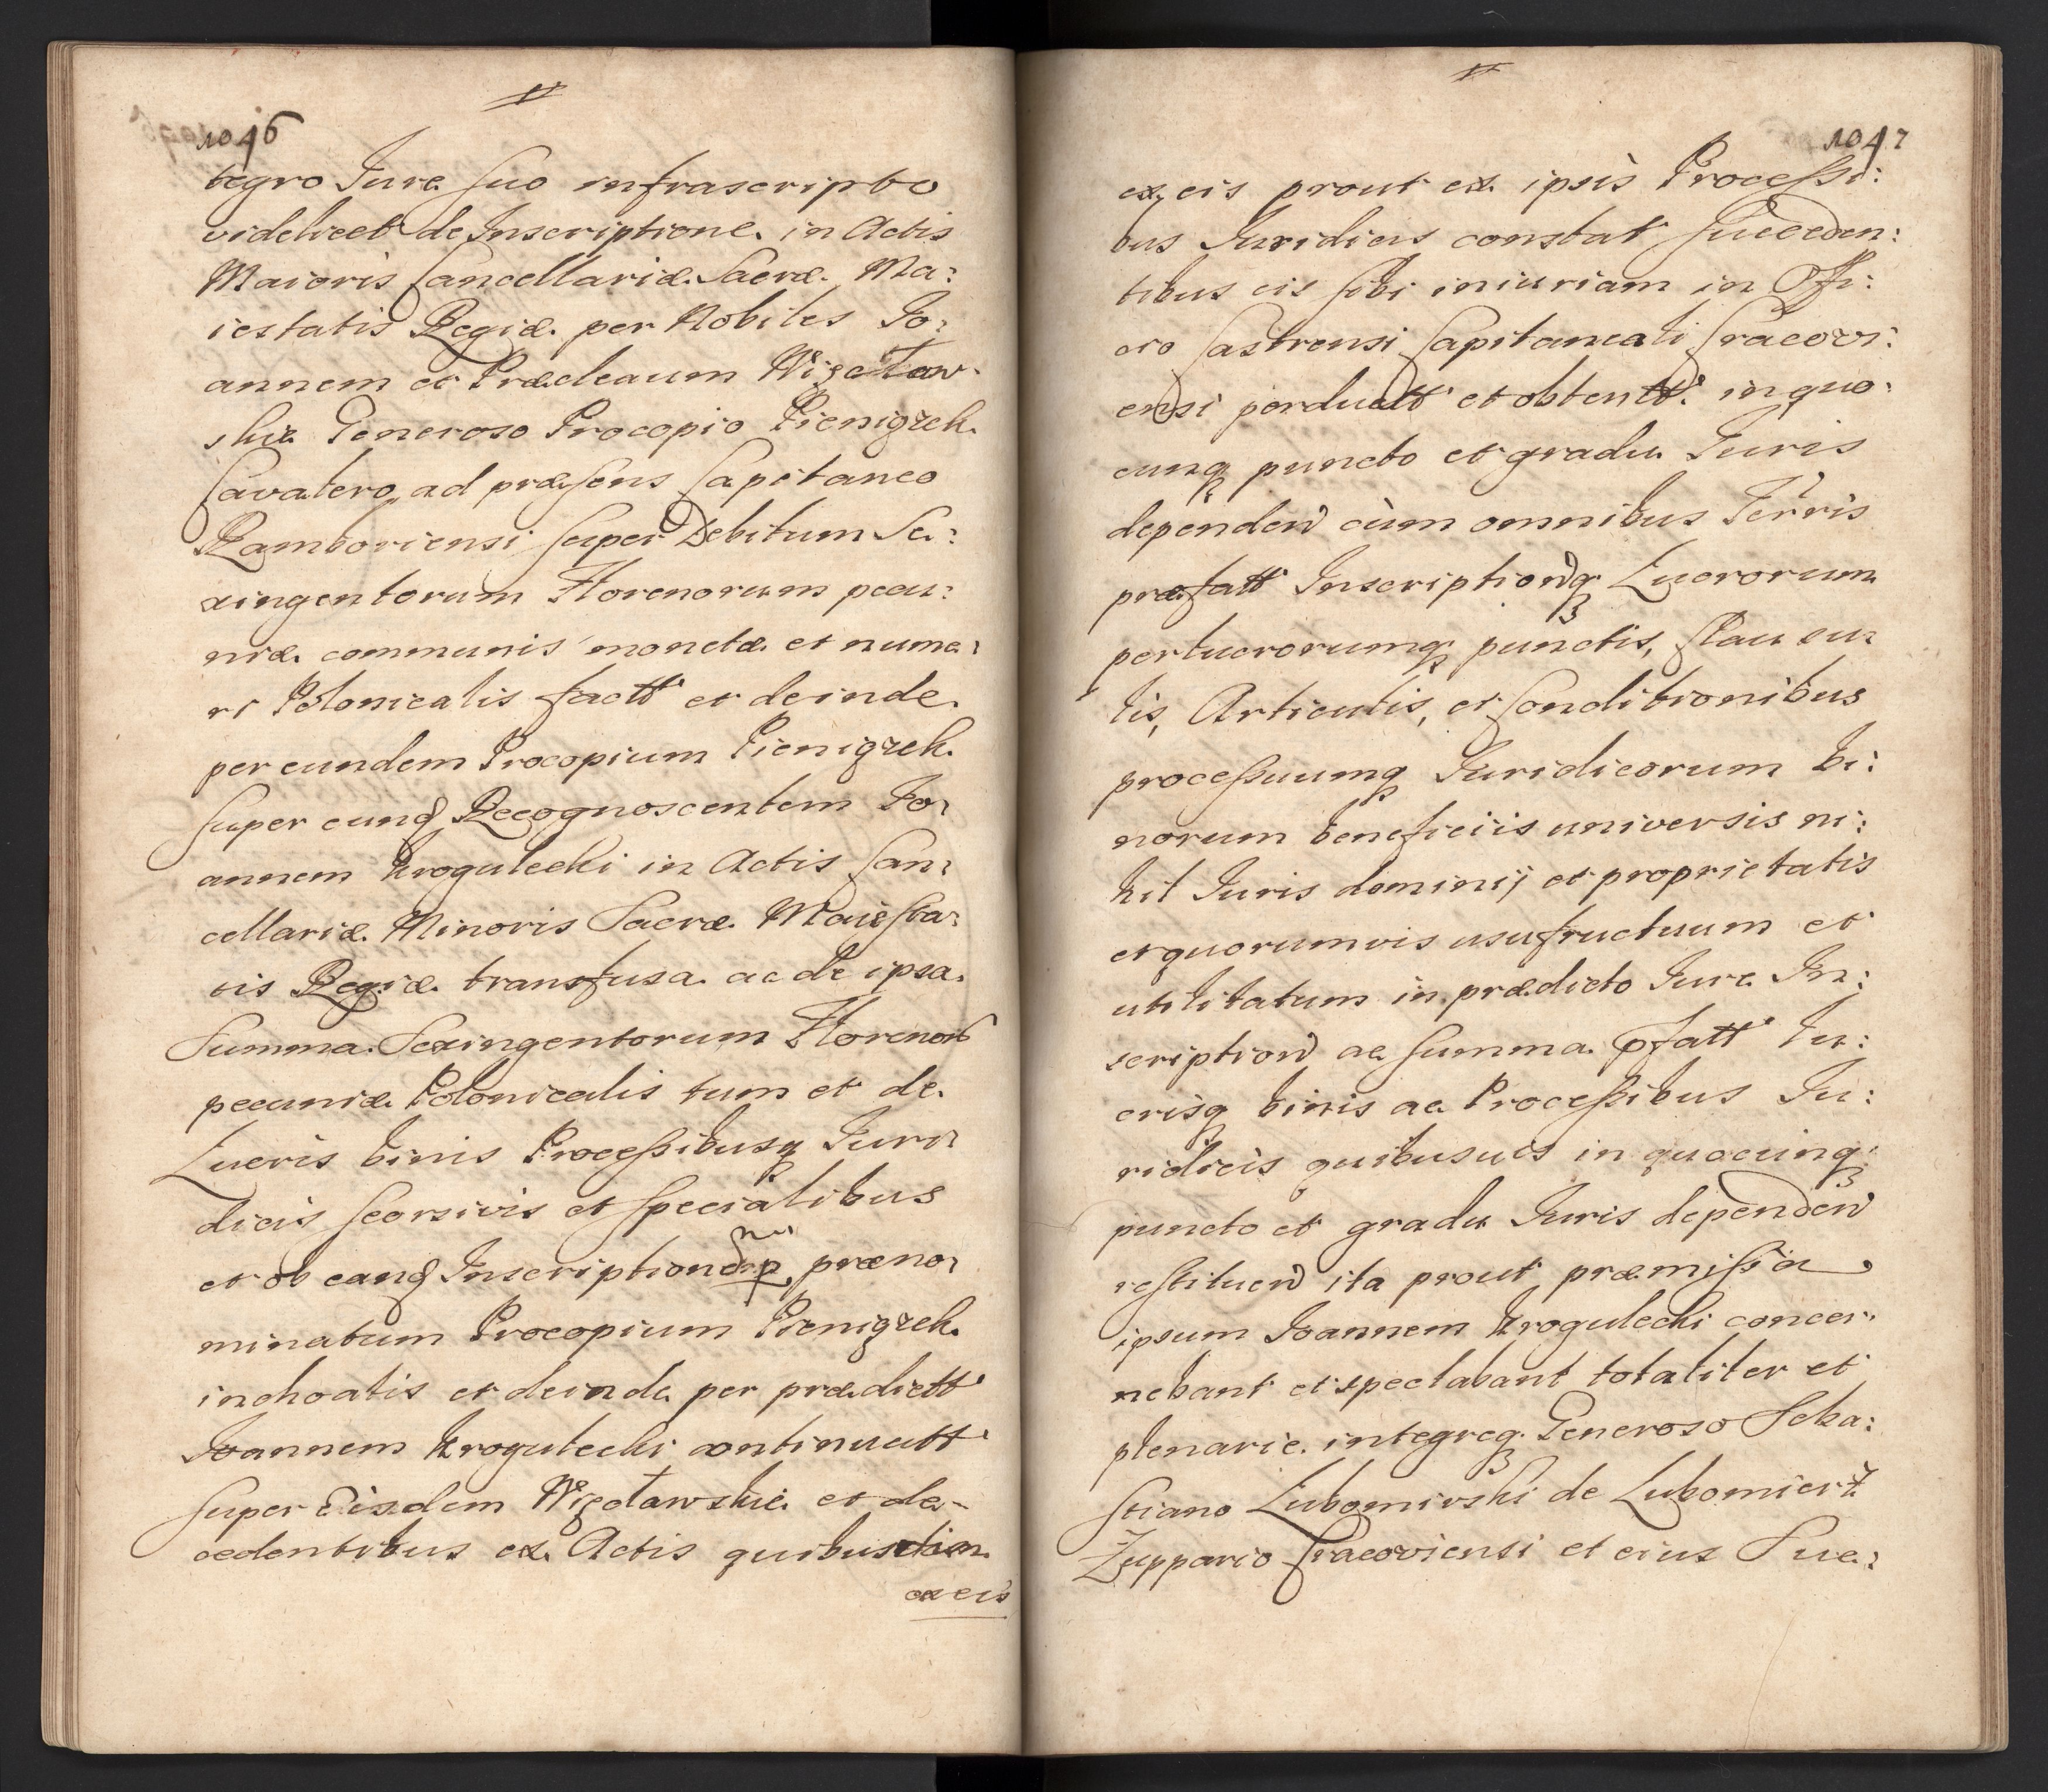 1046
tegro Jure suo infrascripto
videlicet de Inscriptione in Actis
Maioris Cancellariæ Sacræ Ma:
iestatis Regiæ per Nobiles Jo:
annem et Prædeaum Wizeław
skie Generoso Procopio Pieniązek
Cavalero ad præsens Capitaneo
Ramboriensi super Debitum Se:
xingentorum Florenorum pecu:
niæ communis monetæ et nume:
ri Polonicalis factt et deinde
per eundem Procopium Pieniązek
super eund Recognoscentem Jo:
annem Krogulecki in Actis Can:
cellariæ Minoris Sacræ Maiesta:
tis Regiæ transfusa ac de ipsa
Summa Sexingentorum Floreno
pecuniæ Polonicalis tum et de
Lucris binis Processibusq Juri
dicis seorsivis et specialibus
et ob eand Inscription præno
minatum Procopium Pieniązek
inchoatis et deinde per prædictt
Joannem Krogulecki continuatt
super Eisdem Więcławskie et de
cedentibus ex Actis quibusdam
ex eis
1047
ex eis prout ex ipsis Processi:
bus Juridicis constat succeden:
tibus eis sibi iniuriam in Offi:
cio Castrensi Capitaneali Cracovi:
ensi perductt et obtentt in quo:
cunq puncto et gradu Juris
dependen cum omnibus Terris
præfatt Inscriptionq Lucrorum
perlucrorumq punctis, Clausu
lis, Articulis, et Conditionibus
processuumq Juridicorum bi:
norum beneficiis universis ni:
hil Juris dominij et proprietatis
et quorumvis usufructuum et
utilitatum in prædicto Jure In:
scription ac summa pfatt lu:
crisq binis ac Processibus Ju:
ridicis quibusuis in quocunq
puncto et gradu Juris dependen
restituen ita prout præmissa
ipsum Joannem Krogulecki concer:
nebant et spectabant totaliter et
plenarie integreq Generoso Seba:
stiano Lubomirski de Lubomierz
Zuppario Cracoviensi et eius Suc: